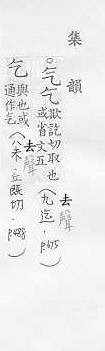 集韻
气气欺訖切取也
或省文五
去聲
(九迄·p.675)
乞與也或
通作气
去聲
(八未·丘旣切·p.488)